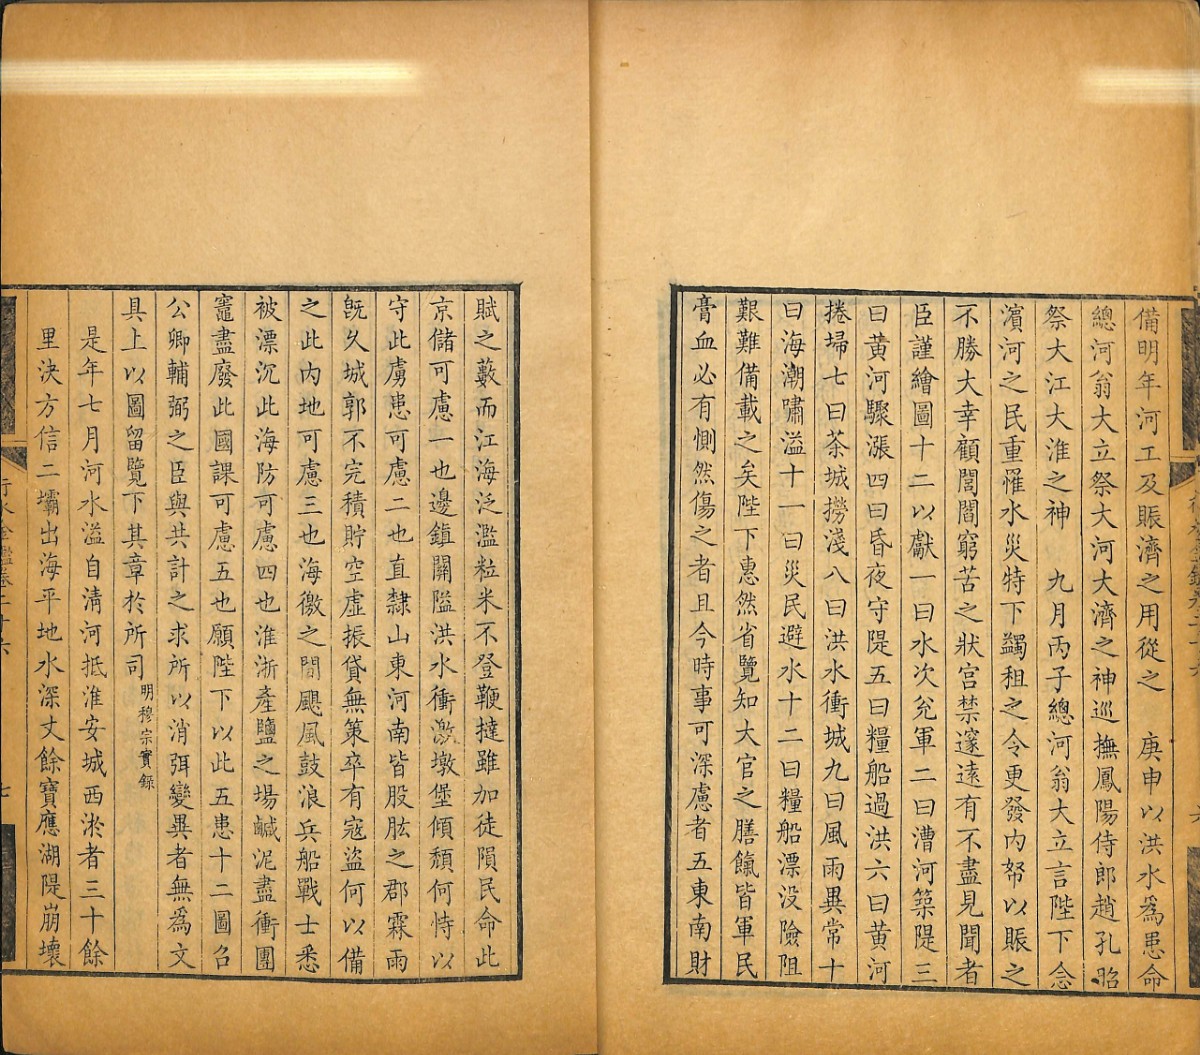 備明年河工及賑濟之用從之　庚申以洪水為患命
總河翁大立祭大河大濟之神巡撫鳳陽侍郎趙孔昭
祭大江大淮之神　九月丙子總河翁大立言陛下念
濱河之民重罹水災特下蠲租之令更發內帑以賑之
不勝大幸顧閭閻窮苦之狀宫禁邃遠有不盡見聞者
臣謹繪圖十二以獻一曰水次兊軍二曰漕河築隄三
曰黄河驟漲四曰昏夜守隄五曰糧船過洪六曰黄河
捲埽七曰茶城撈淺八曰洪水衝城九曰風雨異常十
曰海潮嘯溢十一曰災民避水十二曰糧船漂没險阻
艱難備載之矣陛下惠然省覽知大官之膳餼皆軍民
膏血必有惻然傷之者且今時事可深慮者五東南財
賦之藪而江海泛濫粒米不登鞭撻雖加徒隕民命此
京儲可慮一也邊鎮關隘洪水衝激墩堡傾頽何恃以
守此虜患可慮二也直隸山東河南皆股肱之郡霖雨
既久城郭不完積貯空虛振貸無策卒有寇盜何以備
之此内地可慮三也海徼之間颶風鼓浪兵船戰士悉
被漂沉此海防可慮四也淮浙產鹽之場鹹泥盡衝團
竈盡廢此國課可慮五也願陛下以此五患十二圖召
公卿輔弼之臣與共計之求所以消弭變異者無為文
具上以圖留覽下其章於所司明穆宗實録
是年七月河水溢自清河抵淮安城西淤者三十餘
里決方信二壩出海平地水深丈餘寶應湖隄崩壞
行水金鑑卷二十六
七